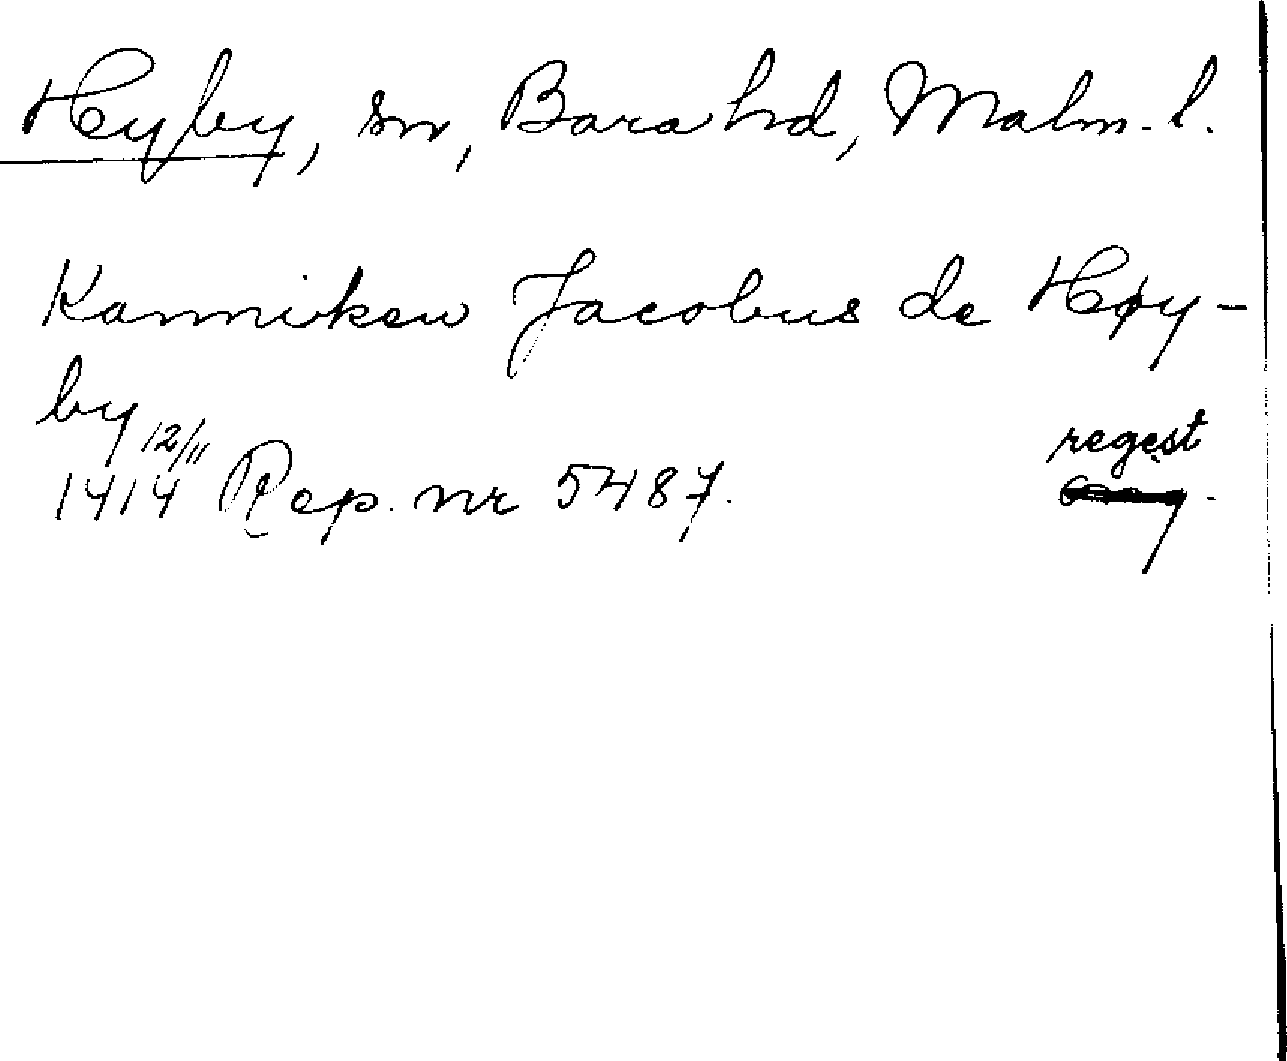 Hyby, sn, Bara hd, Malm. l.
Kanniken Jacobus de Høy-
by 12/11
regest
1414 Rep. nr 5487.